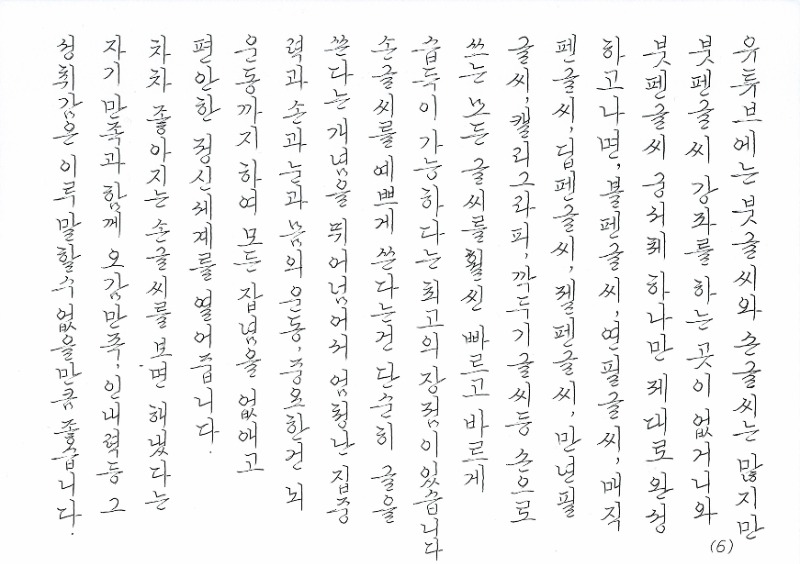 유튜브에는 붓글씨와 손글씨는 많지만
붓펜글씨 강좌를 하는 곳이 없거니와
붓펜글씨 궁서체 하나만 제대로 완성
하고나면, 볼펜글씨, 연필글씨, 매직
펜글씨, 딥펜글씨, 젤펜글씨, 만년필
글씨, 캘리그라피, 깍두기글씨등 손으로
쓰는 모든 글씨를 훨씬 빠르고 바르게
습득이 가능하다는 최고의 장점이있습니다
손글씨를 예쁘게 쓴다는건 단순히 글을
쓴다는 개념을 뛰어넘어서 엄청난 집중
력과 손과눈과 몸의 운동, 중요한건 뇌
운동까지 하여 모든 잡념을 없애고
편안한 정신세계를 열어줍니다.
차차 좋아지는 손글씨를 보면 해냈다는
자기 만족과 함께 오감만족, 인내력등 그
성취감은 이루 말할수 없을만큼 좋습니다.
(6)